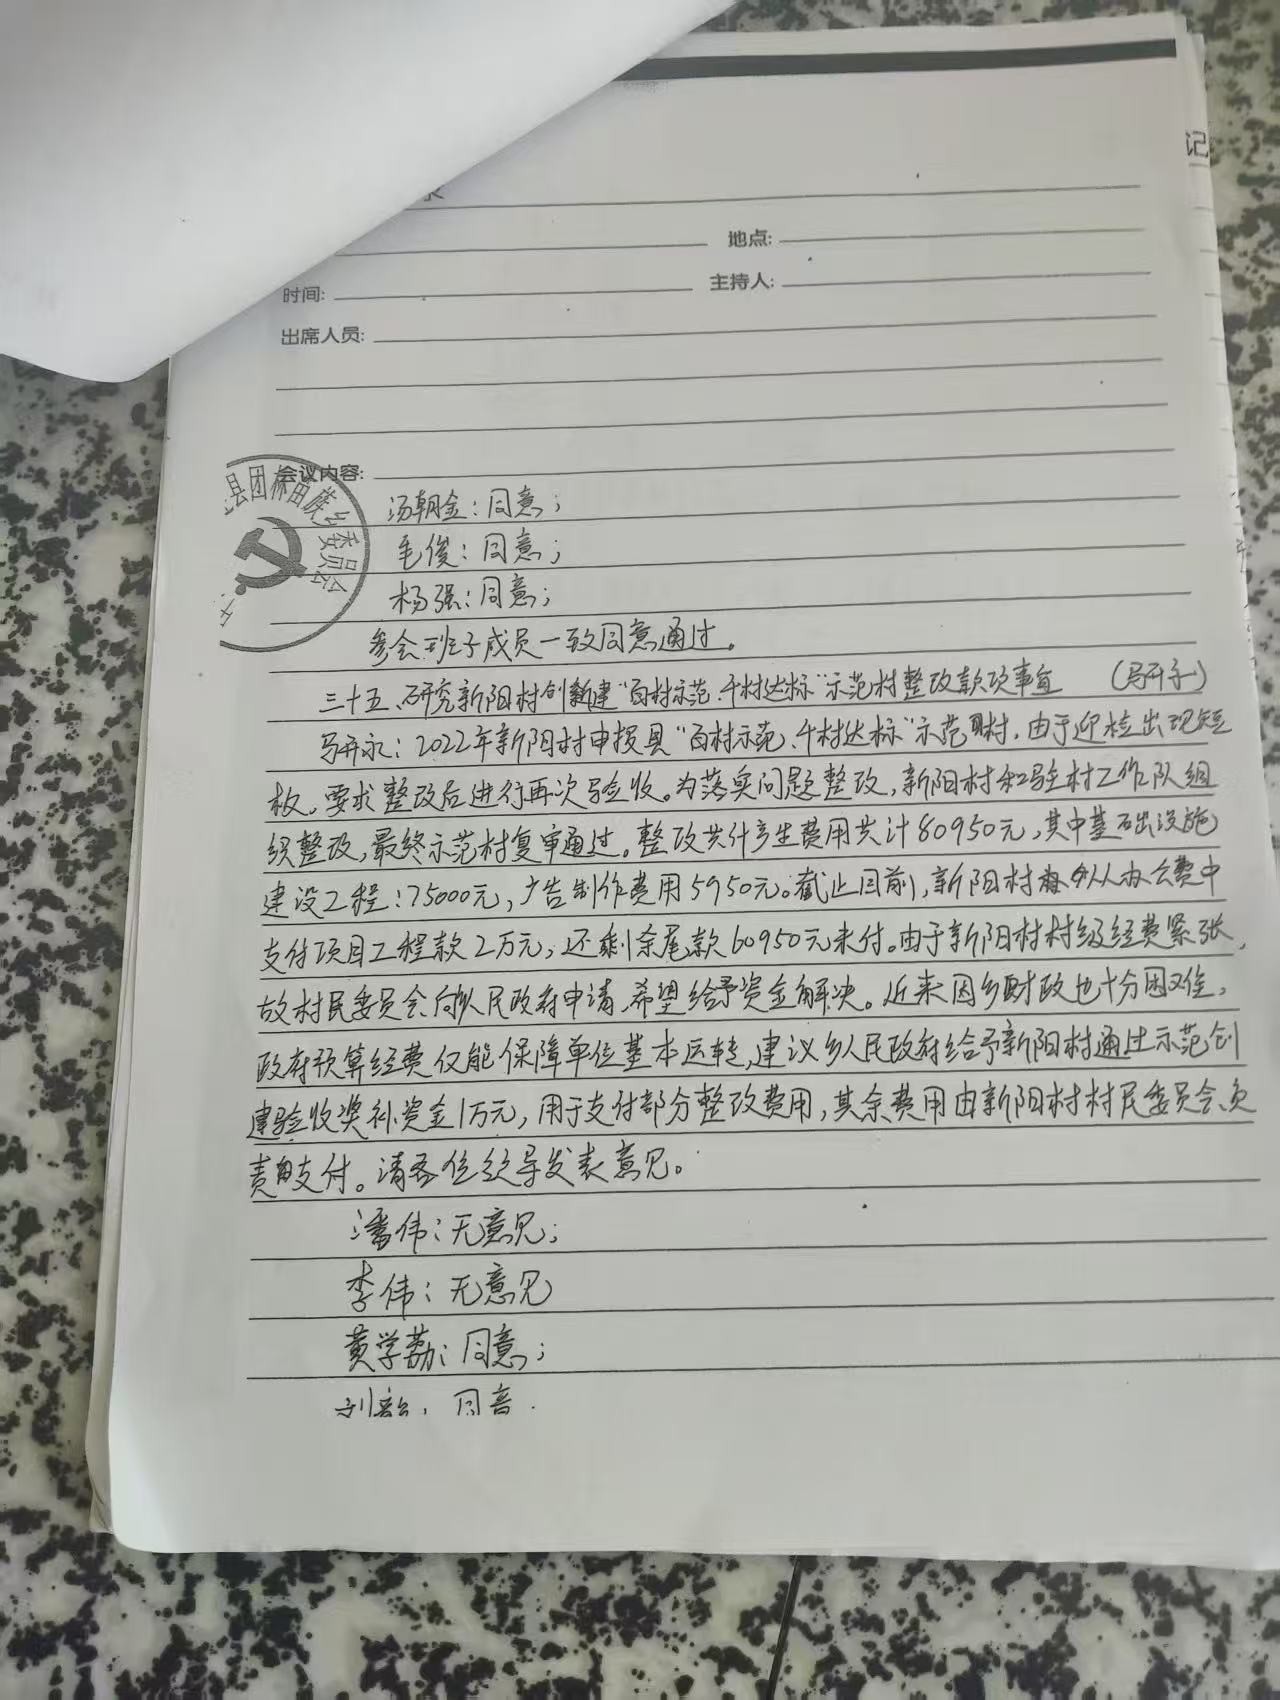 记
地点:
时间:
主持人:
出席人员:
会议内容:
县团林苗族乡委员会
汤朝金：同意；
毛俊：同意；
杨强：同意；
参会班子成员一致同意通过。
三十五、研究新阳村创新建“百村示范、千村达标”示范村整改款项事宜
2022年新阳村申报县“百村示范、千村达标”示范村，由于迎检出现短
板，要求整改后进行再次验收。为落实问题整改，新阳村和驻村工作队组
织整改，最终示范村复审通过。整改共计产生费用共计80950元，其中基础设施
建设工程：75000元，广告制作费用5950元。截止目前，新阳村从办公费中
支付项目工程款2万元，还剩余尾款60950元未付。由于新阳村村级经费紧张，
故村民委员会向人民政府申请，希望给予资金解决。近来因乡财政也十分困难，
政府预算经费仅能保障单位基本运转，建议乡人民政府给予新阳村通过示范创
建验收奖补资金1万元，用于支付部分整改费用，其余费用由新阳村村民委员会负
责支付。请各位领导发表意见。
潘伟：无意见；
李伟：无意见
黄学勤：同意；